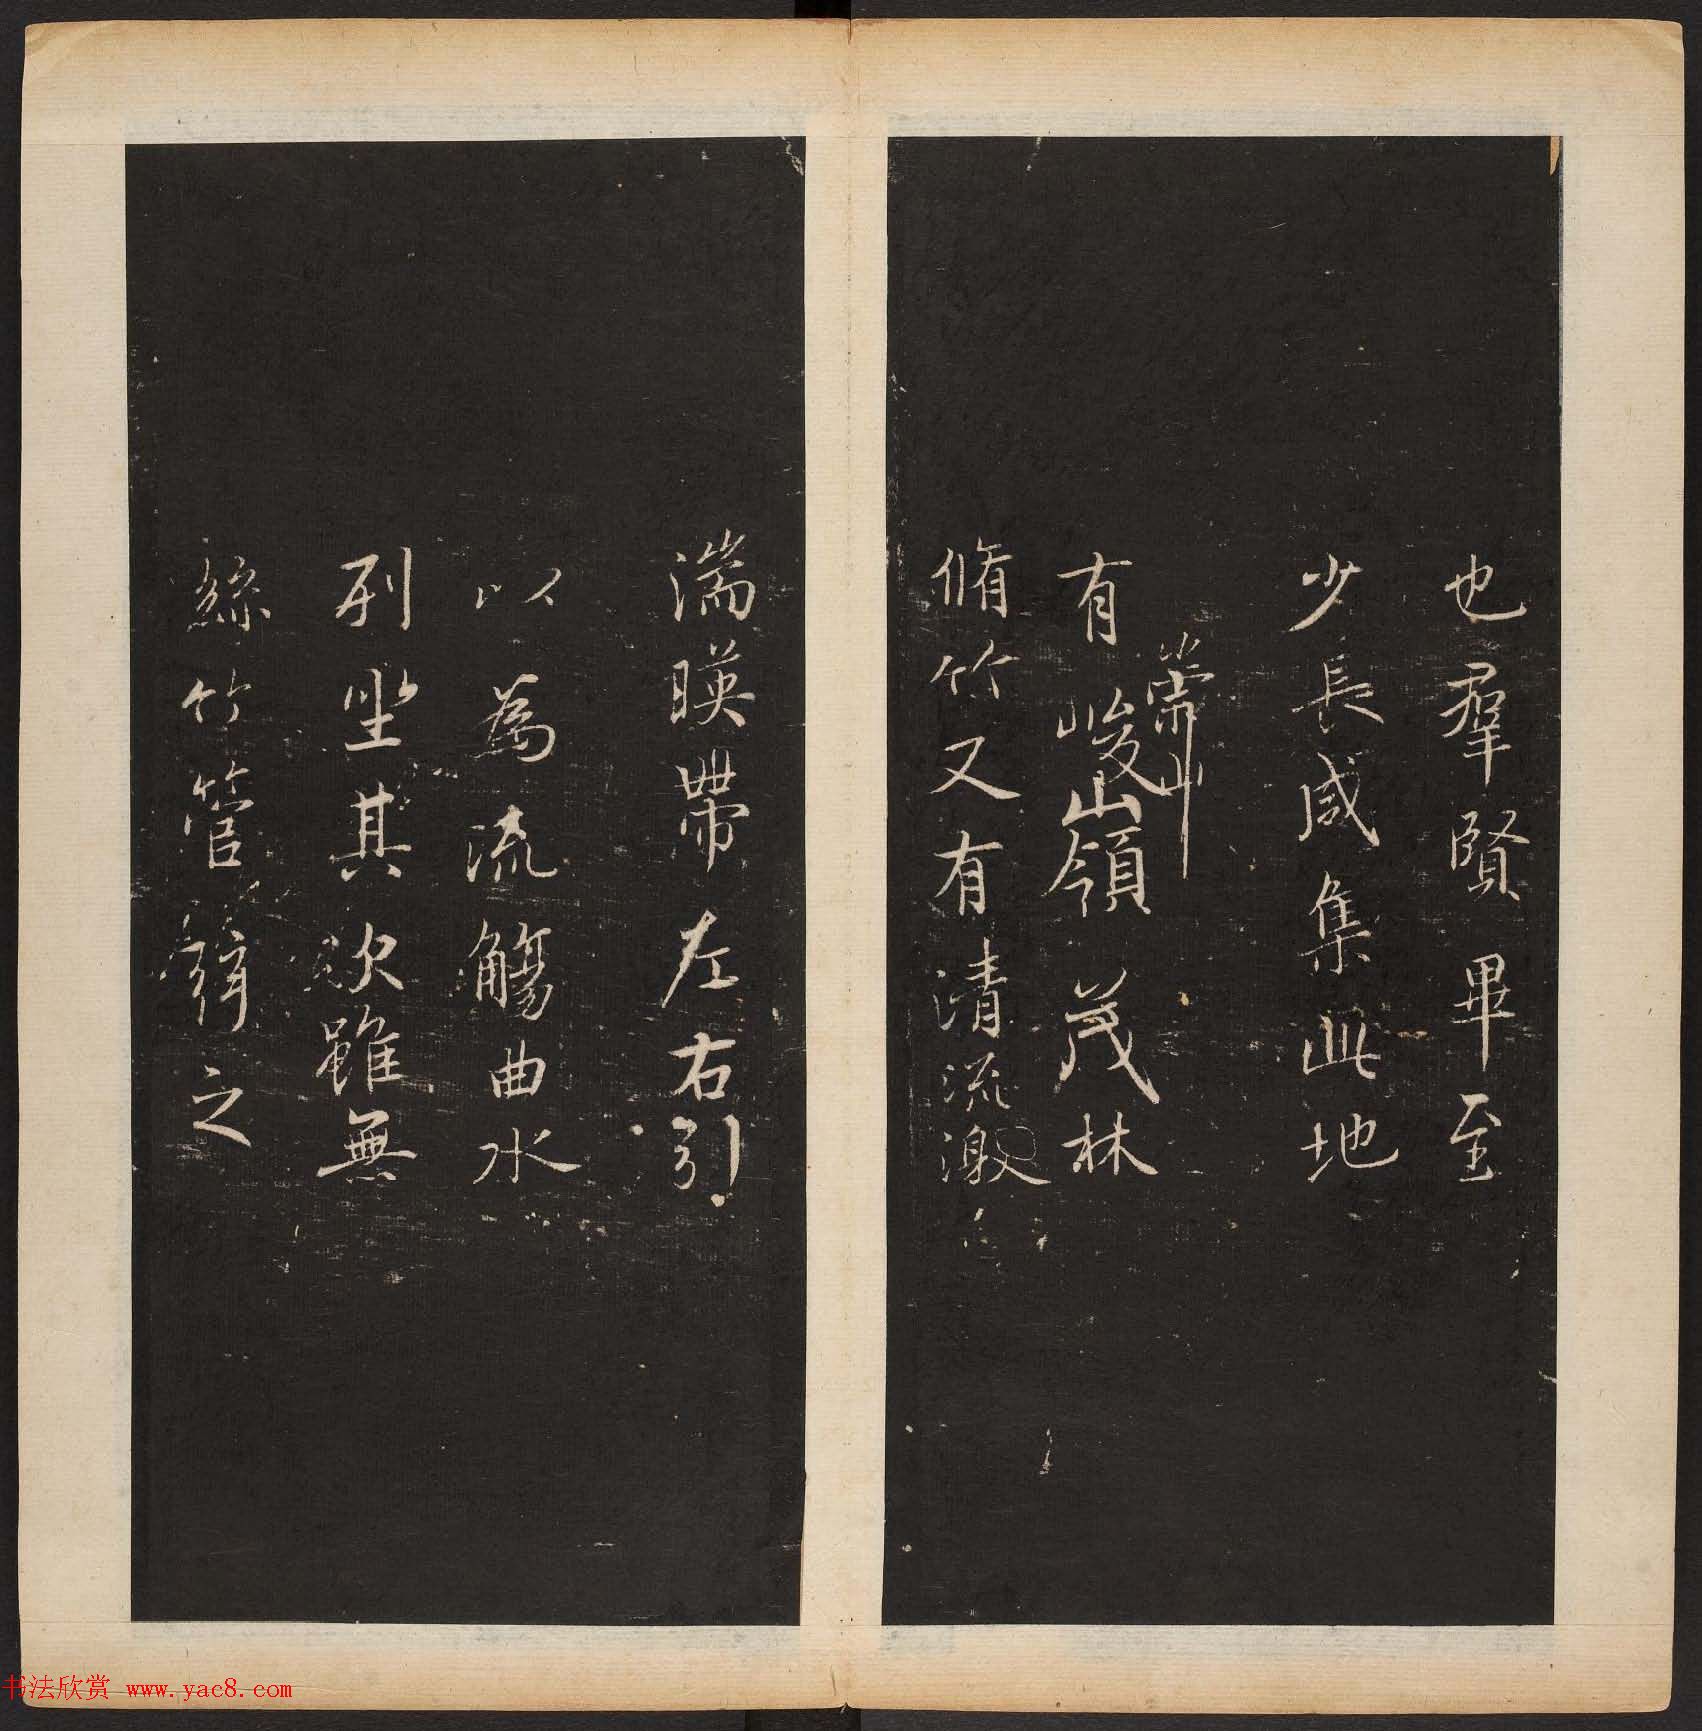 也羣賢畢至
少長咸集此地
有峻山領茂林
崇山
脩竹又有清流激
湍暎帶左右引
以為流觴曲水
列坐其次雖無
絲竹管弦之
书法欣赏 www.yac8.com